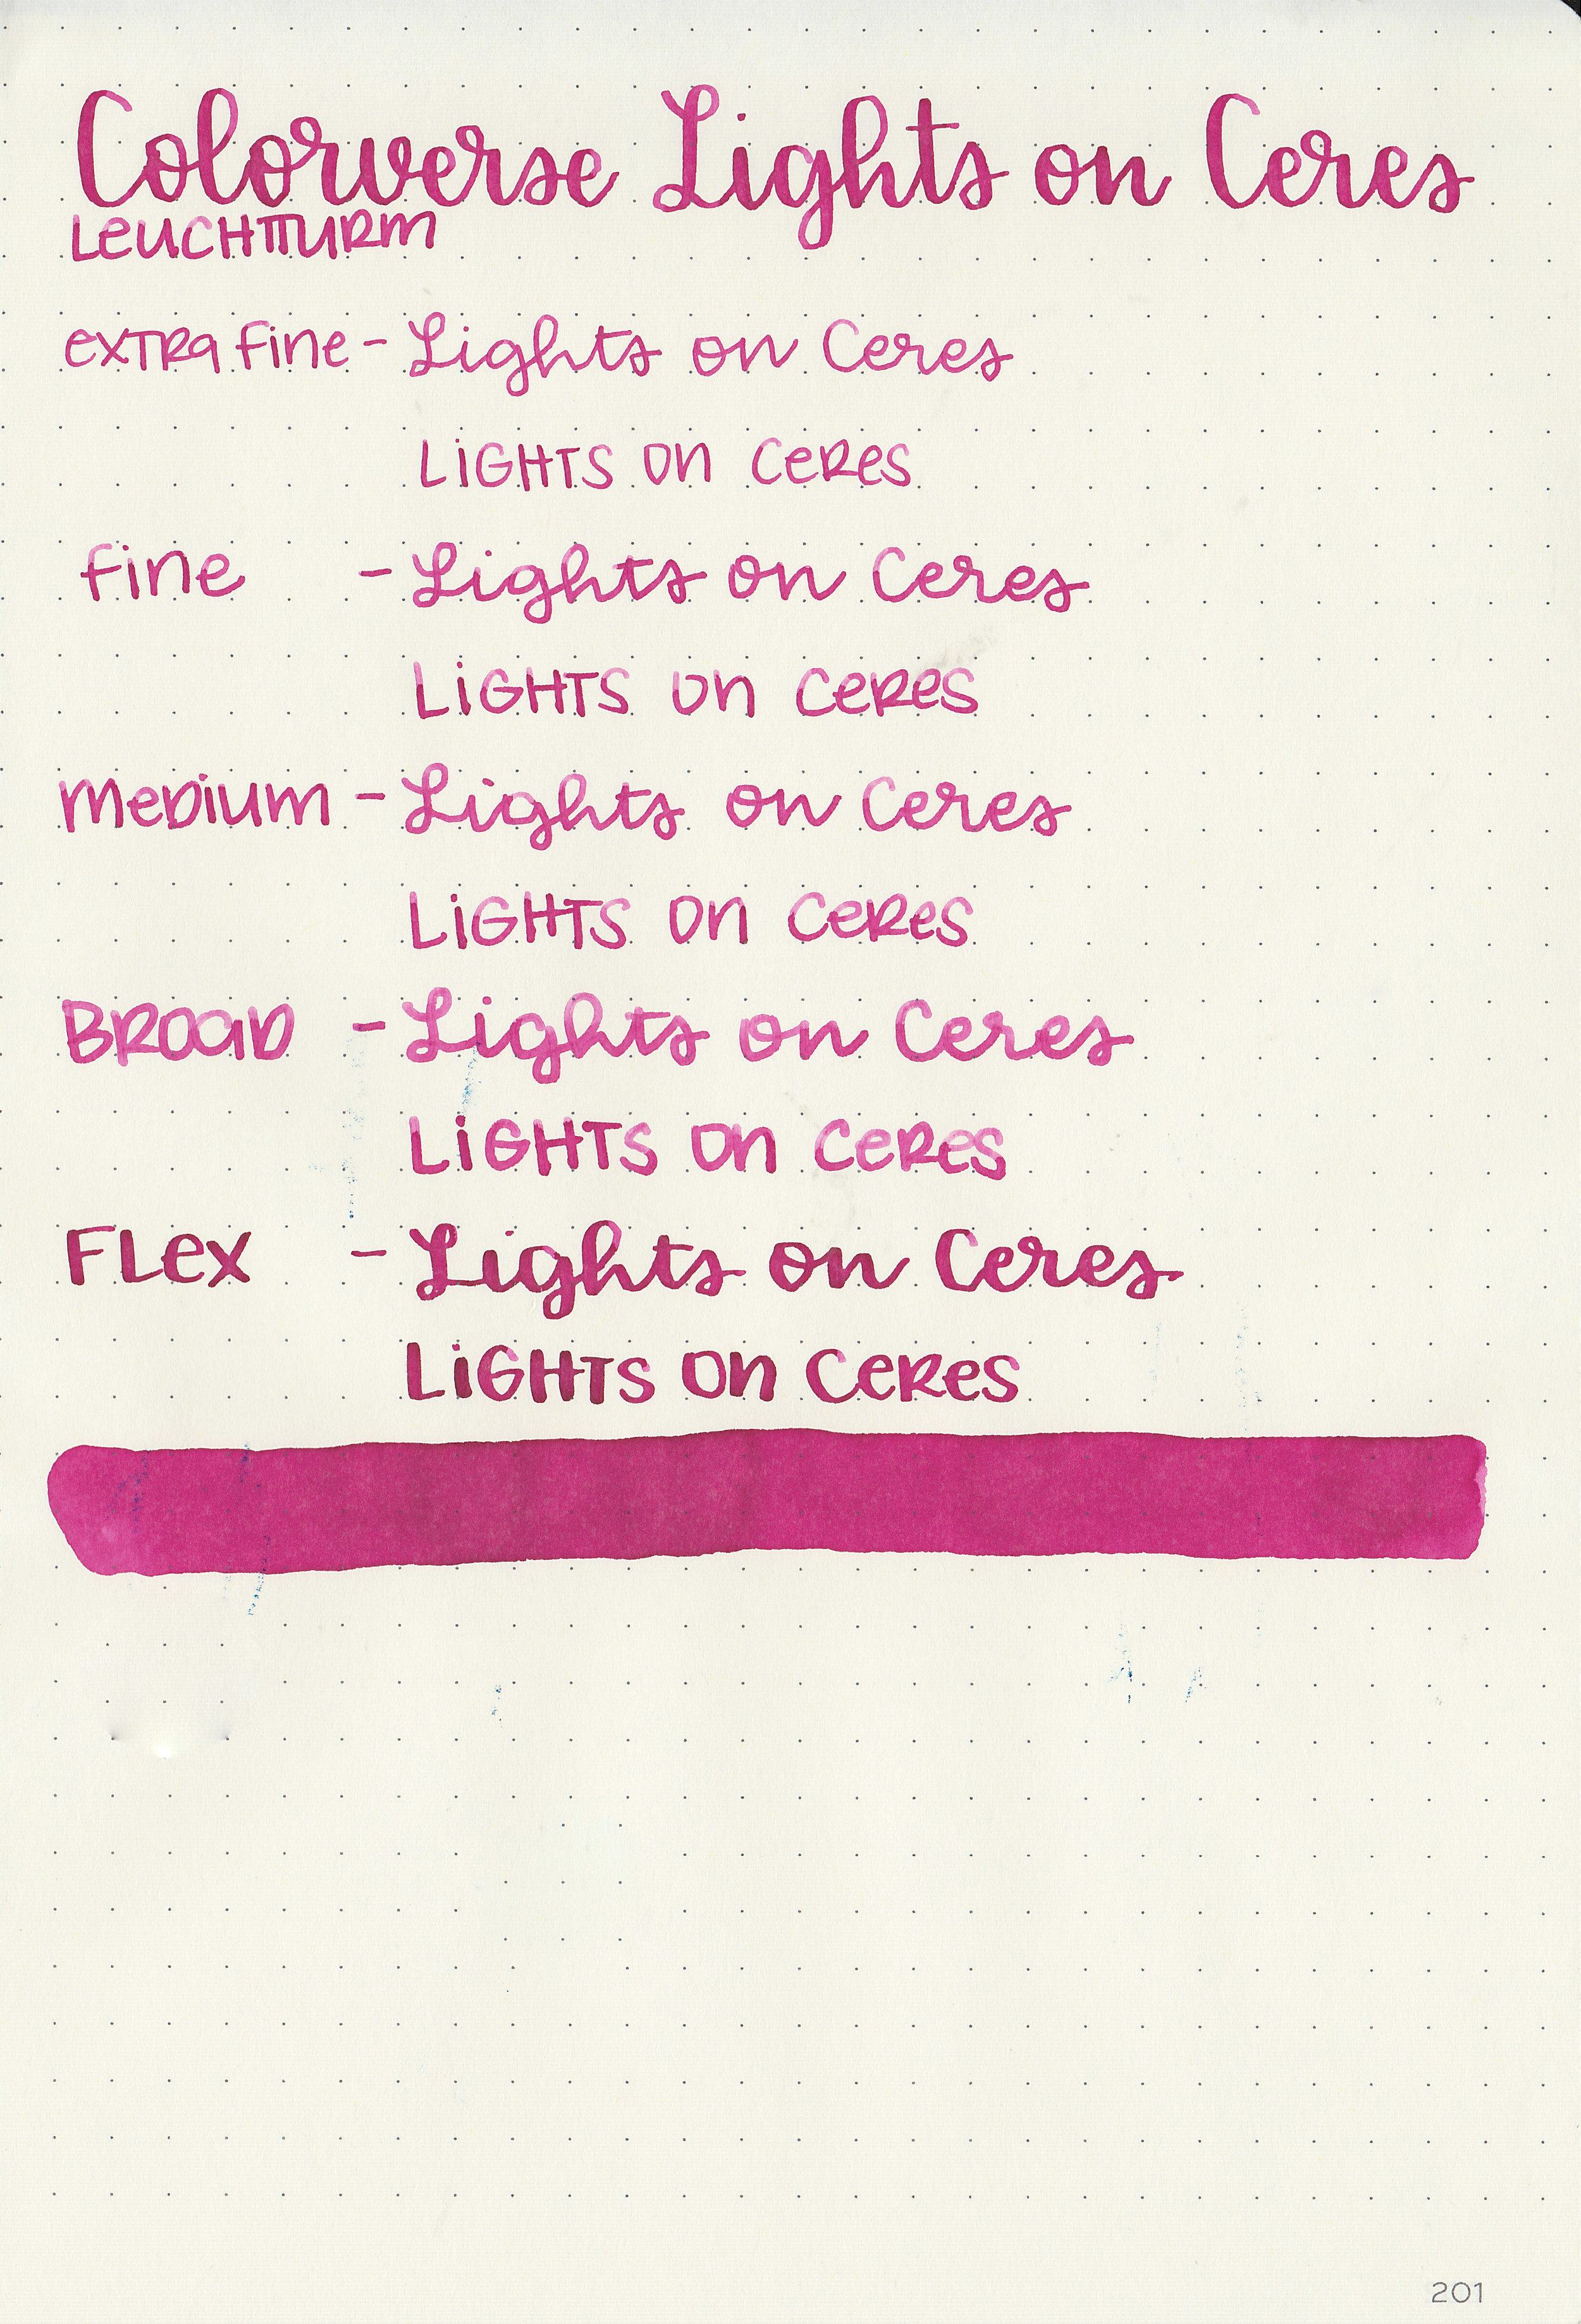 Colorverse Lights on Ceres
LEUCHTTURM
EXTRA FINE - Lights on Ceres
LiGHTS on CeReS
Fine - Lights on Ceres
LiGHTS on CeReS
MeDium - Lights on Ceres
LiGHTS on CeReS
BROAD - Lights on Ceres
LiGHTS on CeReS
FLex - Lights on Ceres
LiGHTS on CeReS
201